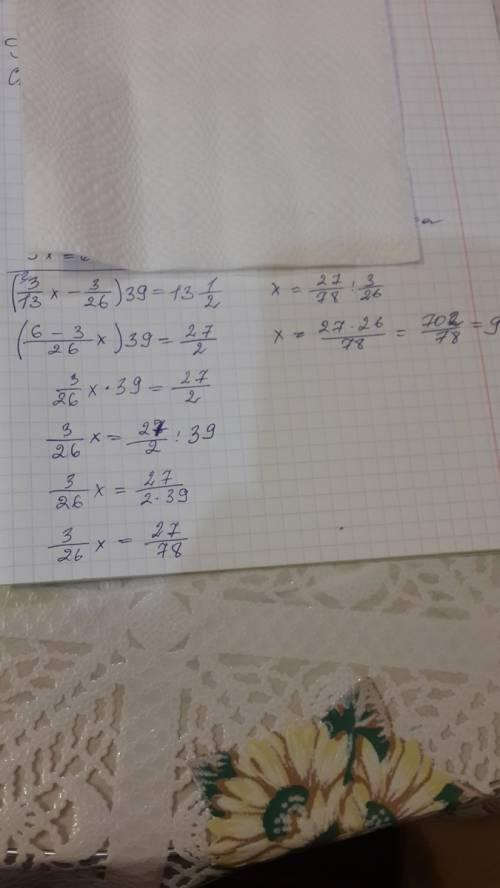 (3/13 x - 3/26) 39 = 13 1/2
(6 - 3/26 x) 39 = 27/2
3/26 x · 39 = 27/2
3/26 x = 27/2 : 39
3/26 x = 27/2·39
3/26 x = 27/78
x = 27/78 : 3/26
x = 27·26/78 = 702/78 = 9